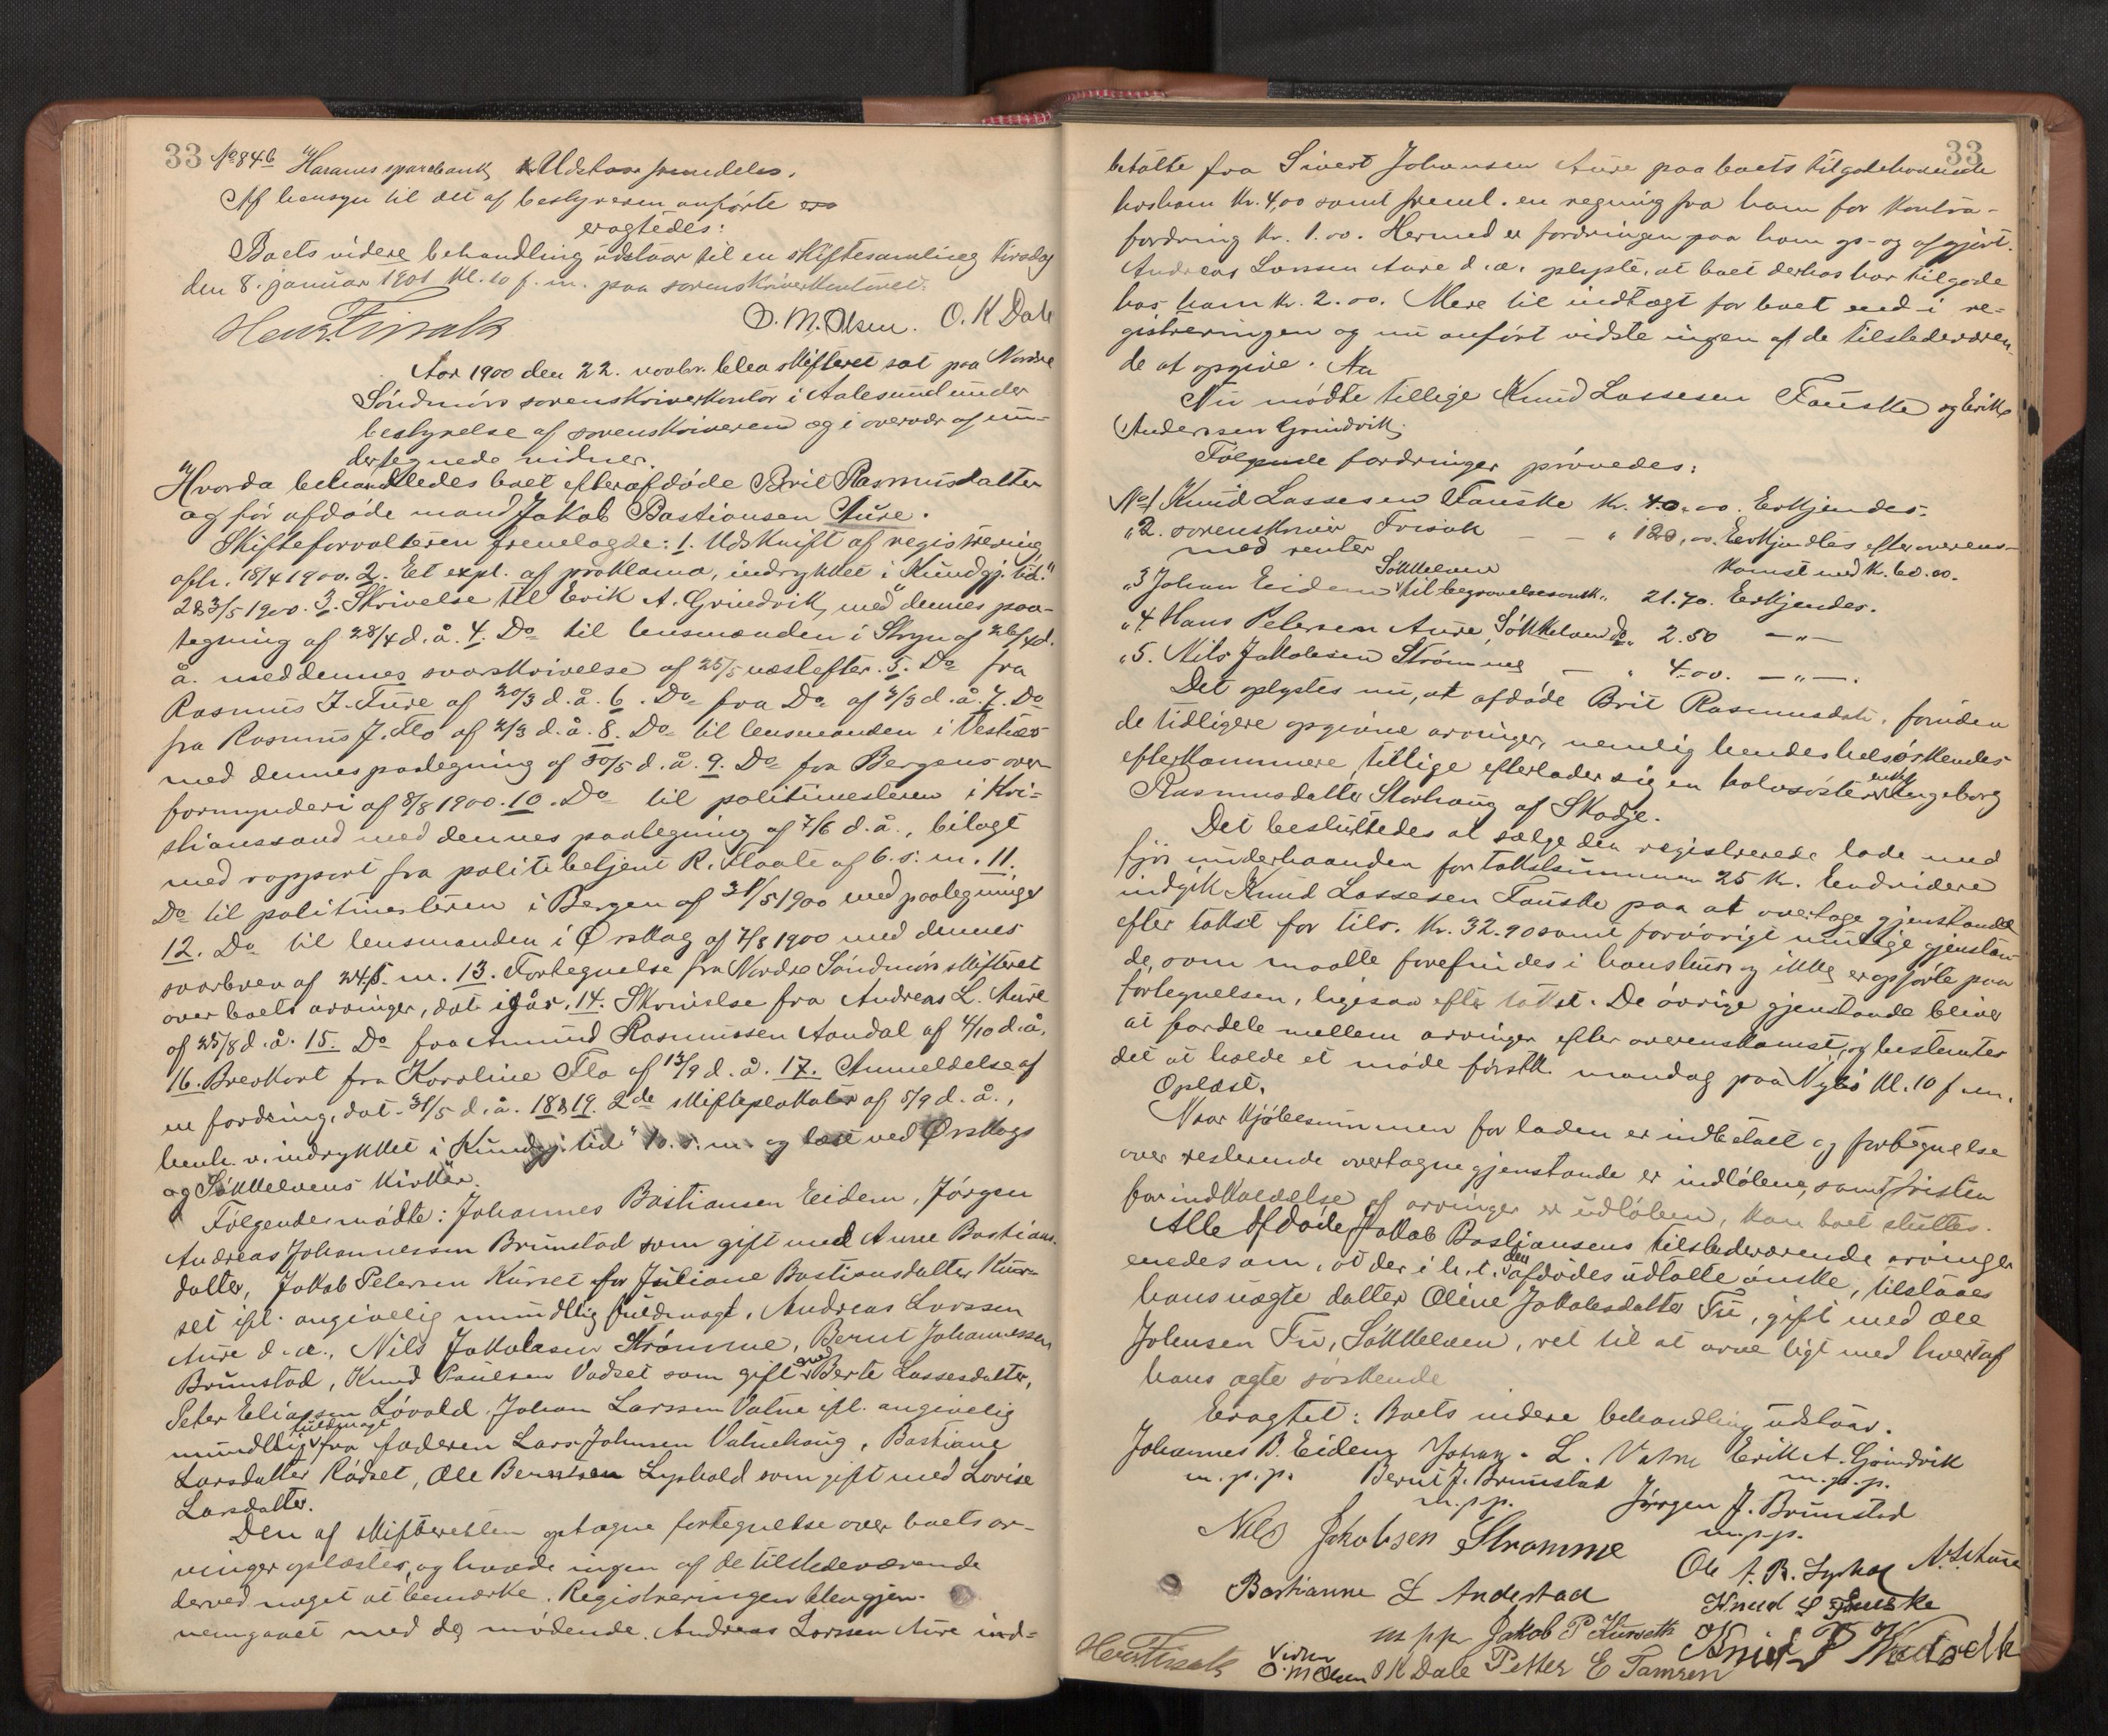 33 No 846 Harams sparebank Udstaar fremdeles.
Af hensyn til det af bestyreren anførte
eragtedes:
Boets videre behandling udstaar til en skiftesamling tirsdag
den 8. januar 1901 kl. 10 f. m. paa sorenskriverkontoret.
O. M. Olsen. O. K Dale
Aar 1900 den 22. novbr. blev skifteret sat paa Nordre
Søndmørs sorenskriverkontor i Aalesund under
bestyrelse af sorenskriveren og i overvær af un-
dertegnede vidner.
Hvorda behandledes boet efter afdøde Brit Rasmusdatter
og før afdøde mand Jakob Bastiansen Aure.
Skifteforvalteren fremlagde: 1. Udskrift af registrering
afh. 18/4 1900. 2. Et expl. af proklama, indrykket i Kundgj. tid."
2 & 3/5 1900. 3. Skrivelse til Erik A. Grindvik, med dennes paa-
tegning af 28/4 d. å. 4. Do til lensmanden i Stryn af 26/4 d.
å. med dennes svarskrivelse af 25/5 næstefter. 5. Do fra
Rasmus J. Ture af 20/3 d. å. 6. Do fra Do af 7/3 d. å. 7. Do
fra Rasmus J. Flo af 2/3 d. å. 8. Do til lensmanden i Vestnes
med dennes paategning af 30/5 d. å. 9. Do fra Bergens over-
formynderi af 8/8 1900. 10. Do til politimesteren i Kri-
stianssand med dennes paategning af 7/6 d. å., bilagt
med rapport fra politibetjent R. Flaate af 6. s. m. 11.
Do til politimesteren i Bergen af 31/5 1900 med paategninger
12. Do til lensmanden i Ørskog af 7/8 1900 med dennes
svarbrev af 24/ s. m. 13. Fortegnelse fra Nordre Søndmørs skifteret
over boets arvinger, dat. igår. 14. Skrivelse fra Andreas L. Aure
af 25/8 d. å. 15. Do fra Amund Rasmussen Aandal af 4/10 d. å.
16. Brevkort fra Karoline Flo af 13/9 d. å. 17. Anmeldelse af
en fordring, dat. 31/5 d. å. 18 & 19. 2de skifteplakater af 5/9 d. å.,
henh. v. indrykket i Kundgj. tid" 10. s. m. og læst ved Ørskogs
og Søkkelvens kirker.
Følgende mødte: Johannes Bastiansen Eidem, Jørgen
Andreas Johannessen Brunstad som gift med Anne Bastians-
datter, Jakob Petersen Kurset for Juliane Bastiansdatter Kur-
set ifl. angivelig mundtlig fuldmagt, Andreas Larssen
Aure d. æ., Nils Jakobsen Strømme, Bernt Johannessen
Brunstad, Knud Paulsen Vadset som gift med Berte Lassesdatter,
Peter Eliassen Løvold, Johan Larssen Valne ifl. angivelig
mundtlig fuldmagt fra faderen Lars Johnsen Valnehaug, Bastiane
Larsdatter Rødset, Ole Berntsen Lyshold som gift med Lovise
Larsdatter.
Den af skifteretten optagne fortegnelse over boets ar-
vinger oplæstes, og havde ingen af de tilstedeværende
derved noget at bemærke. Registreringen blev gjen-
nemgaaet med de mødende. Andreas Larssen Aure ind-
33
betalte fra Sivert Johansen Aure paa boets tilgodehavende
hos ham kr. 4,00 samt freml. en regning fra ham for kontra-
fordring kr. 1.00. Hermed er fordringen paa ham op- og afgjort.
Andreas Larssen Aure d. æ. oplyste, at boet derhos har tilgode
hos ham kr. 2.00. Mere til indtægt for boet end i re-
gistreringen og nu anført vidste ingen af de tilstedeværen-
de at opgive.
Nu mødte tillige Knud Lassesen Fauske og Erik
Anderssen Grindvik.
Følgende fordringer prøvedes:
No 1. Knud Lassesen Fauske kr. 40.00. Erkjendes.
" 2. sorenskriver Frisak — — " 120,00. Erkjendtes efter overens-
med renter komst med k. 60.00.
" 3 Johan Eidem Søkkelven til begravelsesomk. " 21.70. Erkjendes.
" 4. Hans Petersen Aure, Søkkelven Do " 2.50 — " —
" 5. Nils Jakobsen Strømme — " 4.00. — " —.
Det oplystes nu, at afdøde Brit Rasmusdatr. foruden
de tidligere opgivne arvinger, nemlig hendes helsøskendes
efterkommere, tillige efterlader sig en halvsøster enke Ingeborg
Rasmusdatter Storhaug af Skodje.
Det besluttedes at sælge den registrerede lade med
fjøs underhaanden for takstsummen 25 kr. Endvidere
indgik Knud Lassesen Fauske paa at overtage gjenstande
efter takst for tils. kr. 32.90 samt forøvrigt mulige gjenstan-
de, som maatte forefindes i hans hus og ikke er opførte paa
fortegnelsen, ligesaa efter takst. De øvrige gjenstande bliver
at fordele mellem arvinger efter overenskomst, og bestemtes
det at holde et møde førstk. mandag paa kl. 10 f. m.
Oplæst.
Naar kjøbesummen for laden er indbetalt og fortegnelse
over resterende overtagne gjenstande er indløbne, samt fristen
for indkaldelse af arvinger er udløben, kan boet sluttes.
Alle afdøde Jakob Bastiansens tilstedeværende arvinger
enedes om, at der i h. t. den afdødes udtalte ønske, tilstaaes
hans uægte datter Oline Jakobsdatter Tu, gift med Ole
Johnsen Tu, Søkkelven, ret til at arve ligt med hvert af
hans ægte søskende
Eragtet: Boets videre behandling udstaar.
Johannes B. Eidem Johan. L. Valne Erik A. Grindvik
m. p. p. Bernt J. Brunstad m. p. p.
m. p. p. Jørgen J. Brunstad
Nils Jakobsen Strømme m. p. p.
Ole A. B. A. L. Aure
Bastianne L Andestad Knud L Fauske
m p p Jakob P Kurseth
Vidner
O. M Olsen O K Dale Petter E